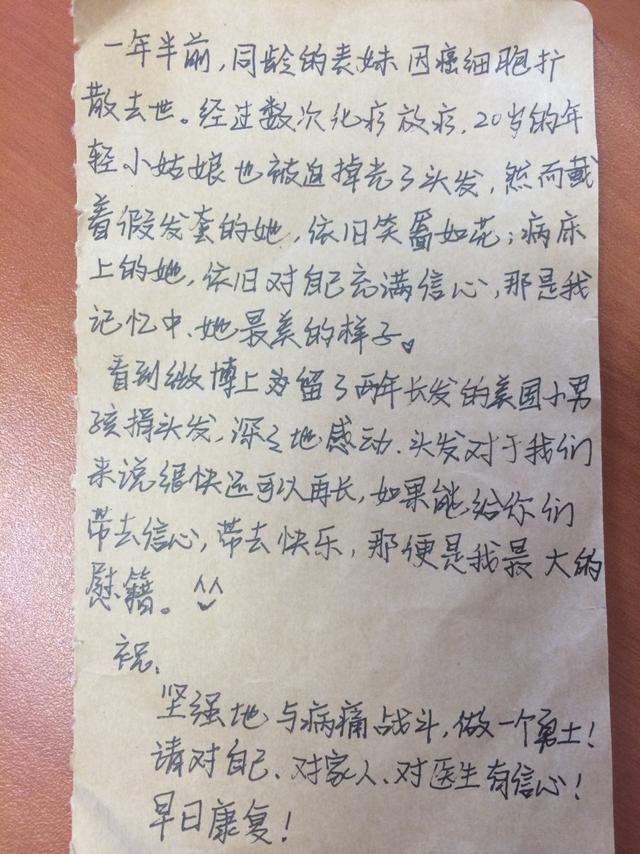 一年半前，同龄的表妹因癌细胞扩
散去世。经过数次化疗放疗，20岁的年
轻小姑娘也被迫掉光了头发，然而戴
着假发套的她，依旧笑靥如花；病床
上的她，依旧对自己充满信心，那是我
记忆中，她最美的样子。
看到微博上为留了两年长发的美国小男
孩捐头发，深深地感动，头发对于我们
来说很快还可以再长，如果能给你们
带去信心，带去快乐，那便是我最大的
慰籍。^^
祝，
坚强地与病痛战斗，做一个勇士！
请对自己、对家人、对医生有信心！
早日康复！